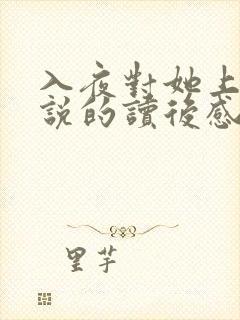 入夜對她上
說的讀後感
里芋